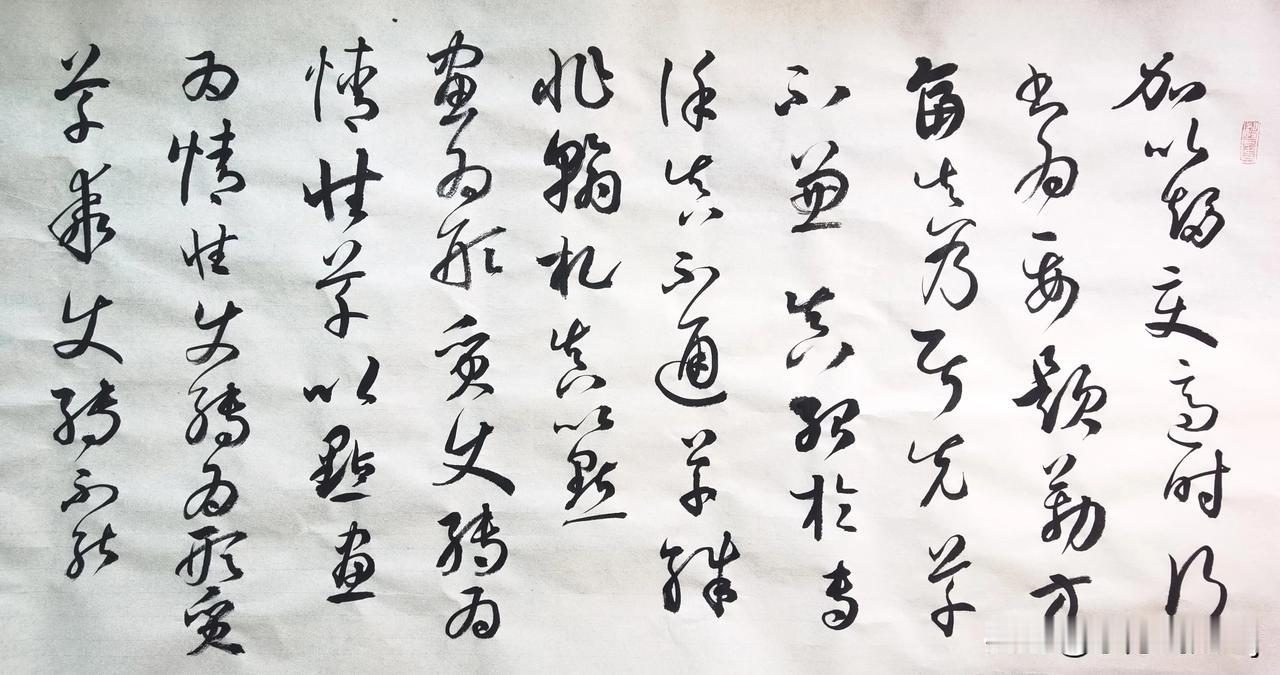 加以趨變適時行
書為要題勒方
畐真乃居先草
不兼真殆於專
謹真不通草殊
非翰札真以點
畫為形質使轉為
情性草以點畫
為情性使轉為形質
草乖使轉不能